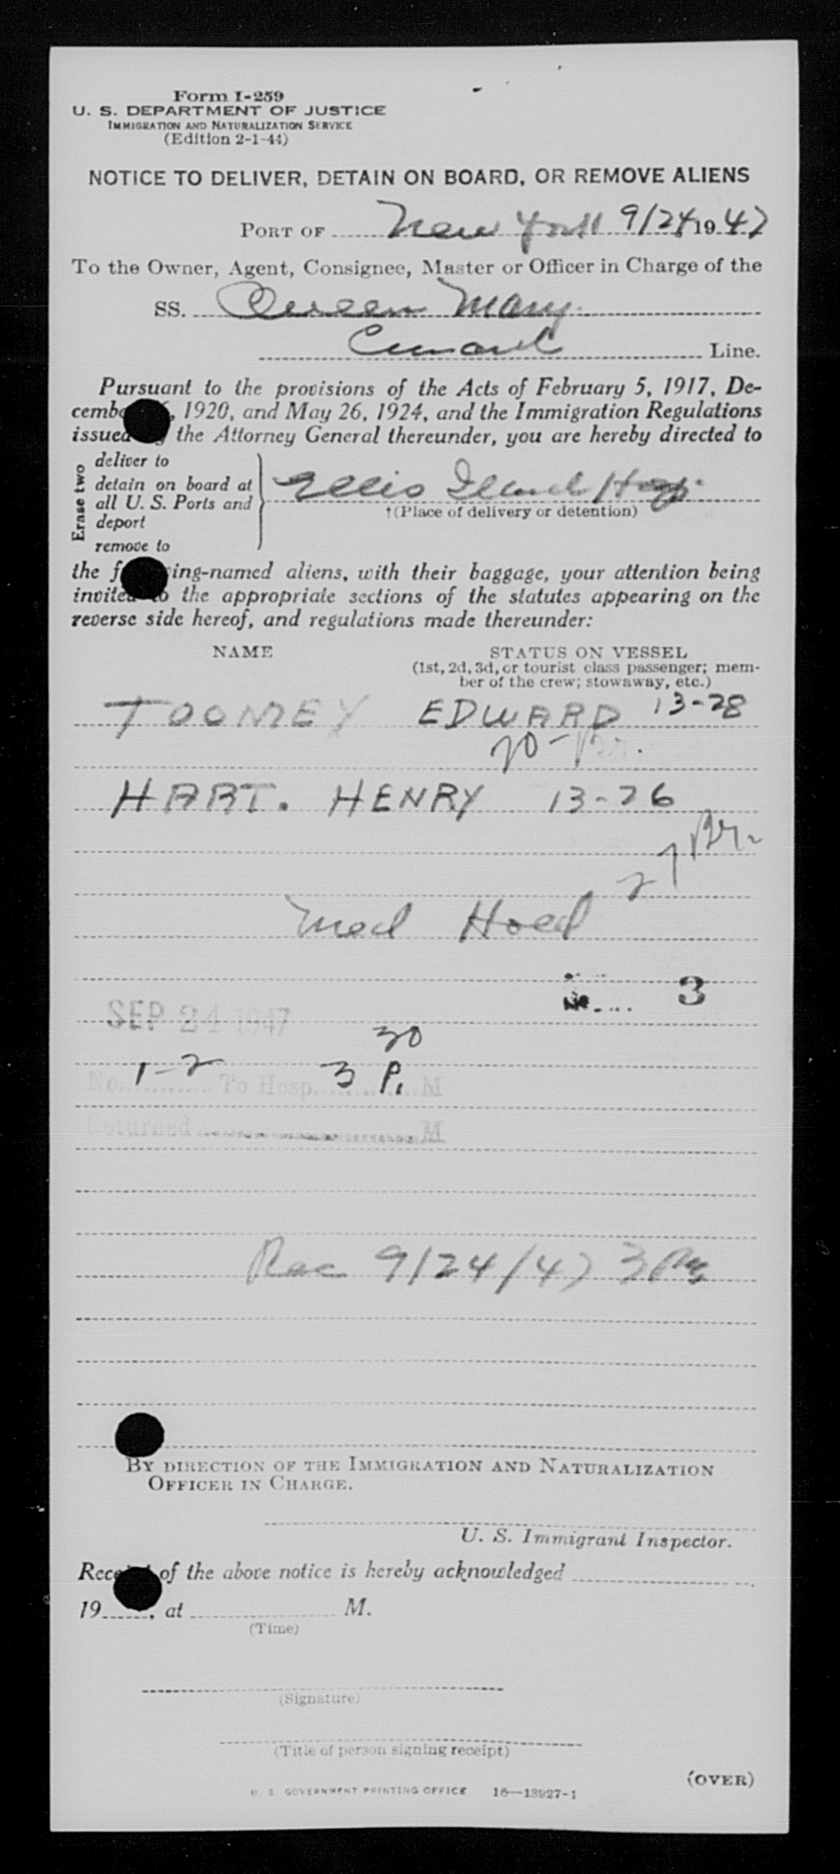 Form I-259
U. S. DEPARTMENT OF JUSTICE
IMMIGRATION AND NATURALIZATION SERVICE
(Edition 2-1-44)
NOTICE TO DELIVER, DETAIN ON BOARD, OR REMOVE ALIENS
PORT OF New York 9/24 1947
To the Owner, Agent, Consignee, Master or Officer in Charge of the
SS. Queen Mary
Cunard Line.
Pursuant to the provisions of the Acts of February 5, 1917, De-
cemb , 1920, and May 26, 1924, and the Immigration Regulations
issued the Attorney General thereunder, you are hereby directed to
Erase two
deliver to
detain on board at
all U. S. Ports and
deport
remove to
Ellis Island Hosp.
†(Place of delivery or detention)
the f ing-named aliens, with their baggage, your attention being
invited to the appropriate sections of the statutes appearing on the
reverse side hereof, and regulations made thereunder:
NAME STATUS ON VESSEL
(1st, 2d, 3d, or tourist class passenger; mem-
ber of the crew; stowaway, etc.)
TOOMEY EDWARD 13-28
20-Br.
HART. HENRY 13-26
27 Br.
Med Hold
No. 3
SEP 24 1947
30
1-2 3 P.
No. To Hosp. M
Returned M
Rec 9/24/47 3 PM
BY DIRECTION OF THE IMMIGRATION AND NATURALIZATION
OFFICER IN CHARGE.
U. S. Immigrant Inspector.
Rece of the above notice is hereby acknowledged
19 , at M.
(Time)
(Signature)
(Title of person signing receipt)
(OVER)
U. S. GOVERNMENT PRINTING OFFICE 16—13927-1